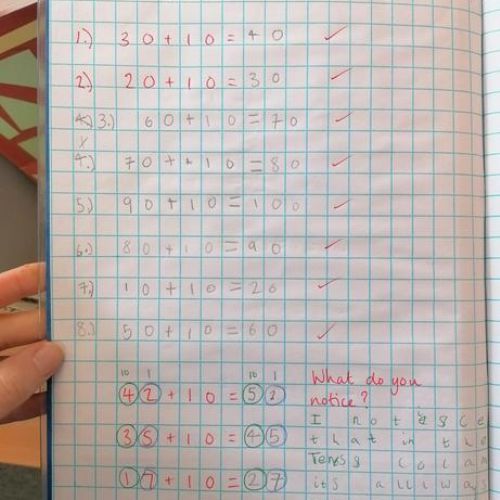 1.) 30+10=40 ✓
2.) 20+10=30 ✓
3.) 60+10=70 ✓
4.) 70++10=80 ✓
5.) 90+10=100 ✓
6.) 80+10=90 ✓
7.) 10+10=20 ✓
8.) 50+10=60 ✓
10 1 10 1
42+10=52
35+10=45
17+10=27
What do you
notice?
I
that in the
its